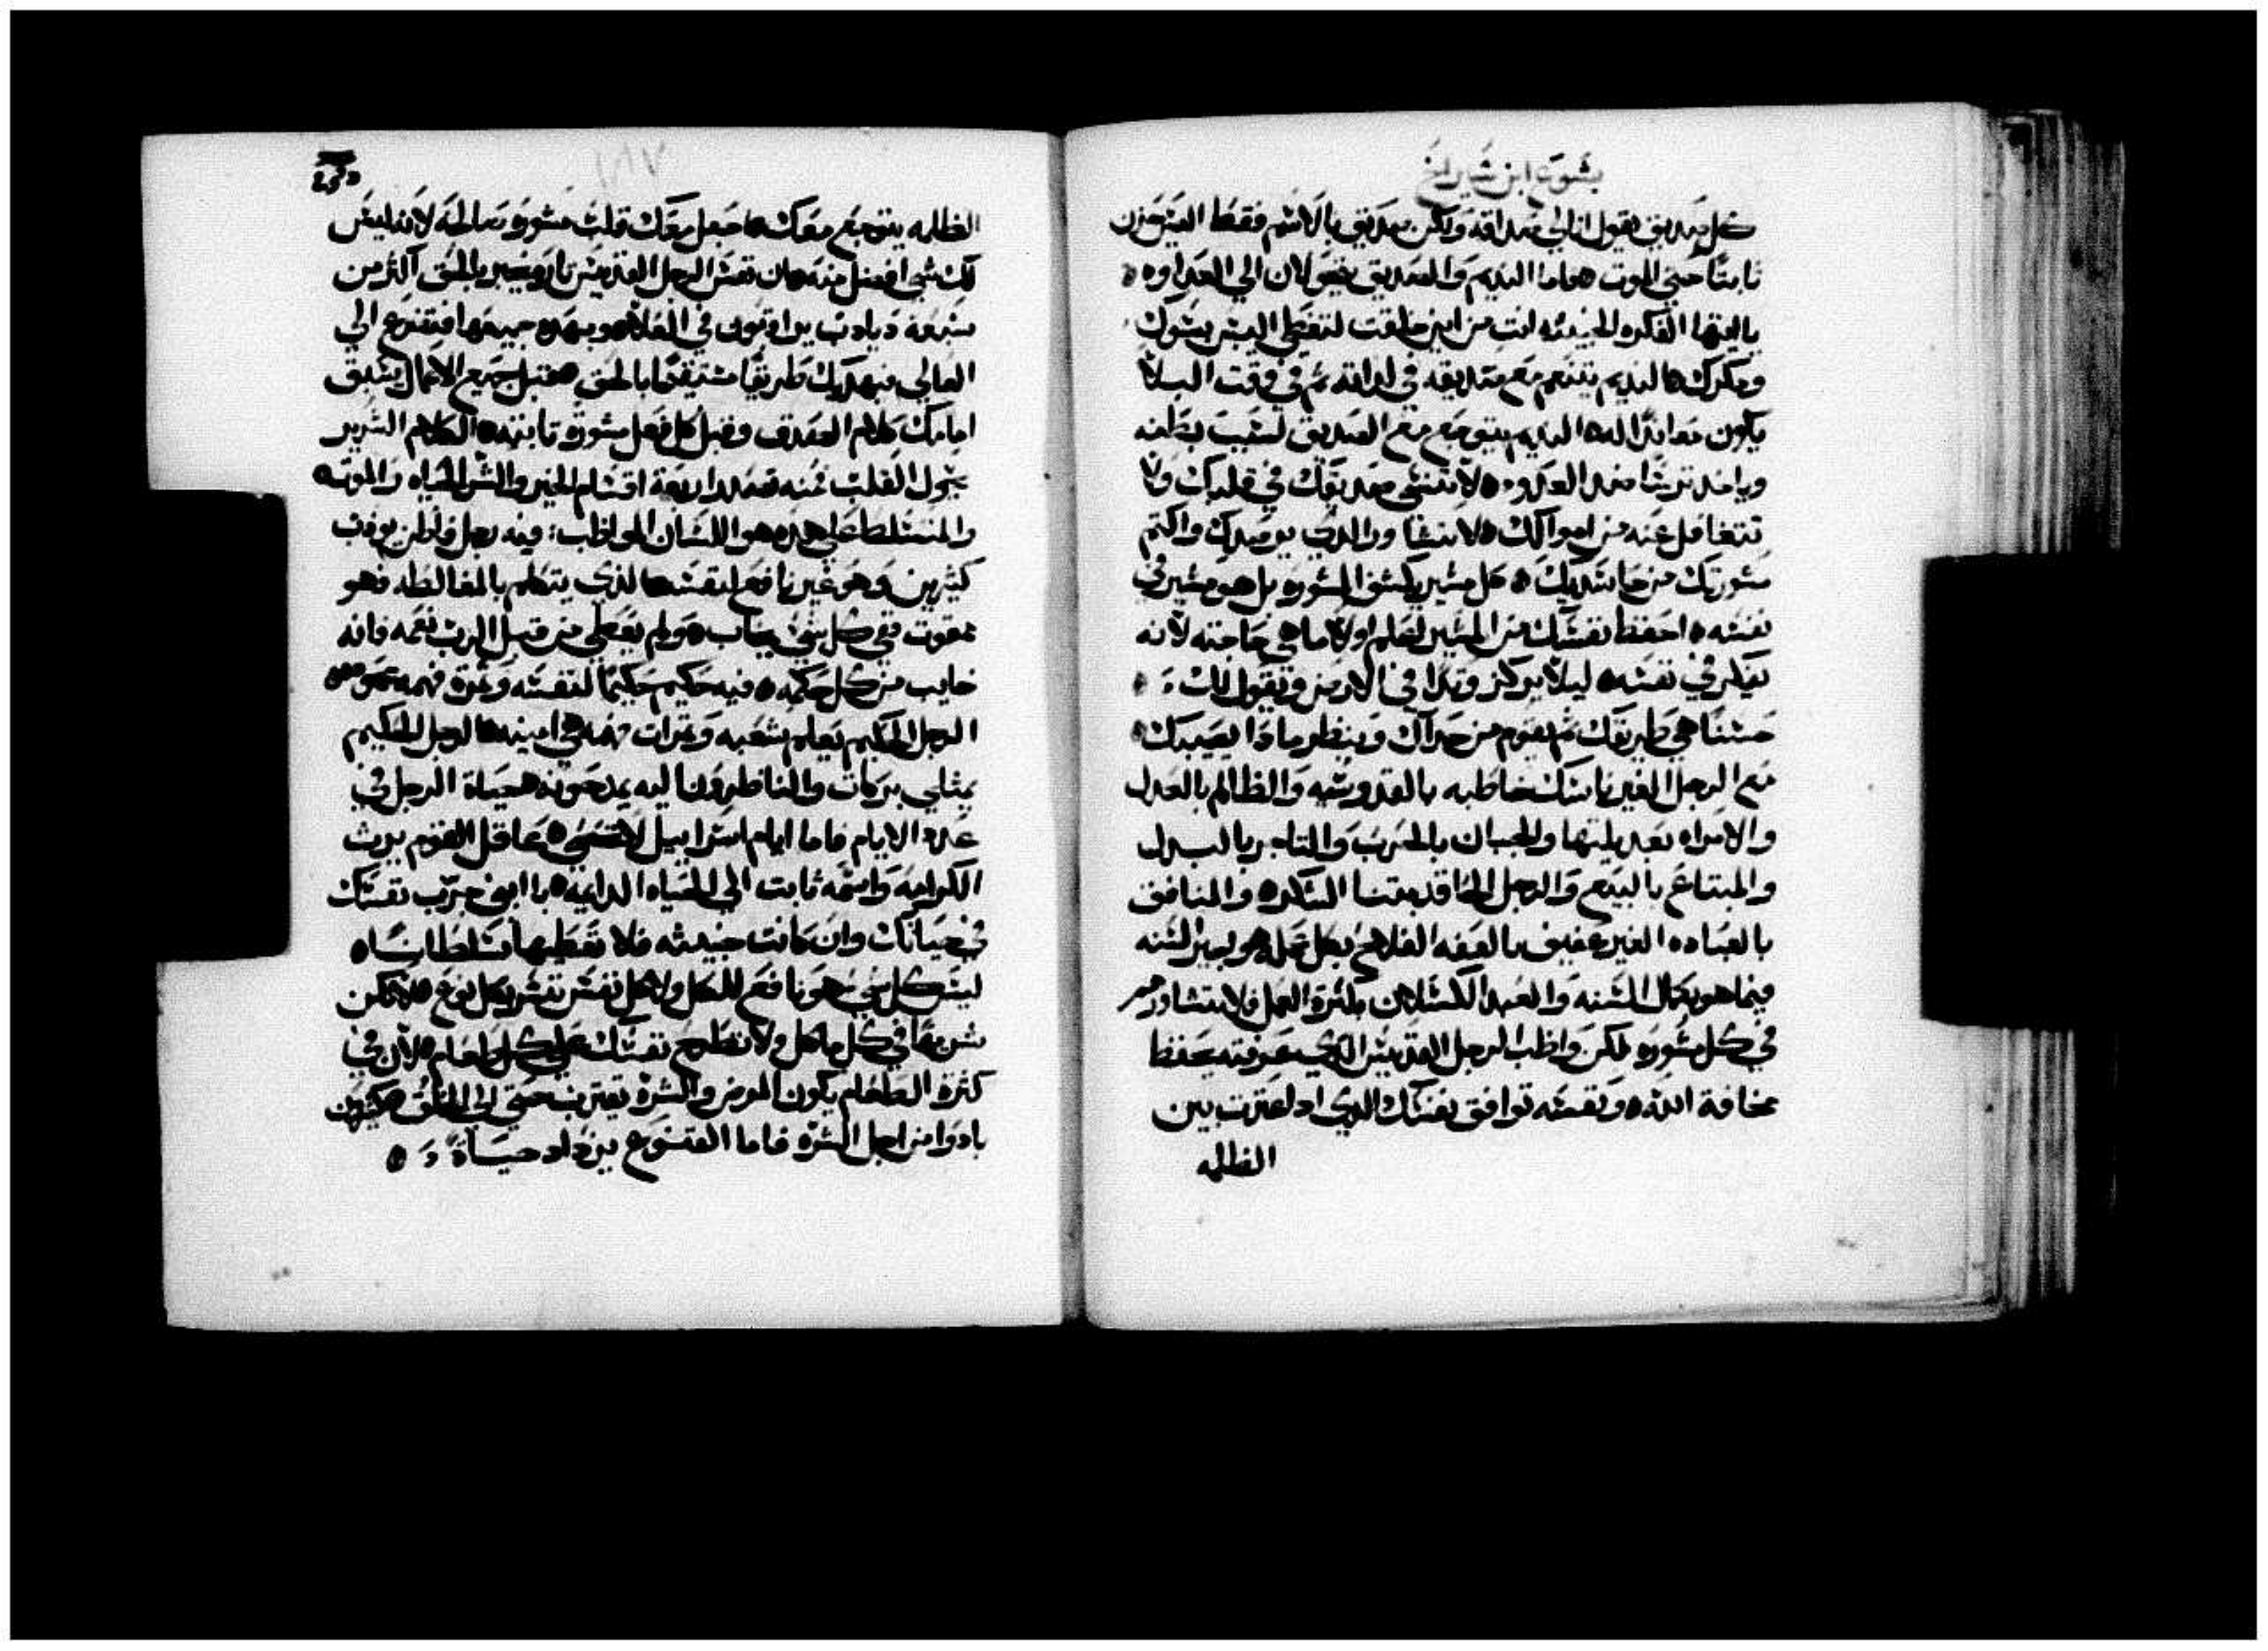 يشوع ابن شيراخ
كل صديق يقول انا لي صداقه ولكن صديق بالاسم فقط اليس حزن
ثابتًا حتي الموت ه فاما النديم والصديق يتحولان الي العداوه ه
يا ايتها الفكره الخبيثه انت من اين خلقت لتغطي اليبس بشرك
ومكرك ه النديم يتنعم مع صديقه في لذاته ثم في وقت البلا
يكون معاندًا له ه النديم يتوجع مع الصديق لسبب بطنه
وياخد ترسًا ضد العدو ه لا تنسي صديقك في قلبك ولا
تتغافل عنه من اموالك ه لا تتشاور والدي يرصدك واكتم
مشورتك من حاسديك ه كل مشير يكشف المشوره بل هو مشير في
نفسه ه احفظ نفسك من المشير لتعلم اولًا ما هي حاجته لانه
يفكر في نفسه ه ليلا يركز وتدًا في الارض ويقول لك :
حسنًا هي طريقك ثم يقوم من حداك وينظر ماذا يصيبك ه
مع الرجل الغير ناسك خاطبه بالقدوسيه والظالم بالعدل
والامراه بعديلتها والجبان بالحرب والتاجر بالبدل
والمبتاع بالبيع والرجل الحاقد بقتنا الشكر ه والمنافق
بالعباده الغير عفيف بالعفه الفلاح بكل عمله هو لجير السنه
فيما هو بكمال السنه والعبد الكسلان بكثرة العمل فلا تتشاور
في كل مشوره لكن واظب الرجل القديس الدي عرفته يحفظ
مخافة الله ه ونفسه توافق نفسك الدي ادا عترت بين
الظلمه
الظلمه يتوجع معك ه اجعل معك قلب مشوره صالحه لانه ليس
لك شي افضل منه ه ان نفس الرجل القديس تاره يخبر بالحق اكثر من
سبعة ديادب يراقبون في العلاه وبهده جميعها فتضرع الي
العالي فيهديك طريقًا مستقيمًا بالحق ه قبل جميع الاعمال يسبق
امامك كلام الصدق وقبل كل فعل مشورة تابته ه الكلام الشرير
يحول القلب منه تصدر اربعة اقسام الخير والشر الحياه والموت ه
والمتسلط علي هده هو اللسان المواظب : فيه رجل فاطن يودب
كثيرين وهو غير نافع لنفسه ه الذي يتكلم بالمغالطه فهو
ممقوت ففي كل شي يخاب ه ولم يعطي من قبل الرب نعمه فانه
خايب من كل حكمه ه فيه حكيم حكيمًا لنفسه وثمرة فهمه
الرجل الحكيم يعلم شعبه وثمرات فهمه هي امينه ه الرجل الحكيم
يمتلي بركات والناظرون اليه يمدحونه ه حياة الرجل في
عدد الايام فاما ايام اسراييل لا تحصي ه عاقل القوم يرث
الكرامه واسمه ثابت الي الحياه الدايمه ه يا ابني جرّب نفسك
في حياتك وان كانت خبيثه فلا تعطيها سلطانًا ه
ليس كل شي هو نافع للكل ولا كل نفس تسر بكل نوع ه لا تكن
شرهًا في كل ماكل ولا تطرح نفسك علي كل طعام ه لان في
كثرة الطعام يكون المرض والشره يقترب حتي الي المغص ه كثيرون
بادوا من اجل الشره فاما القنوع يزداد حياة ه